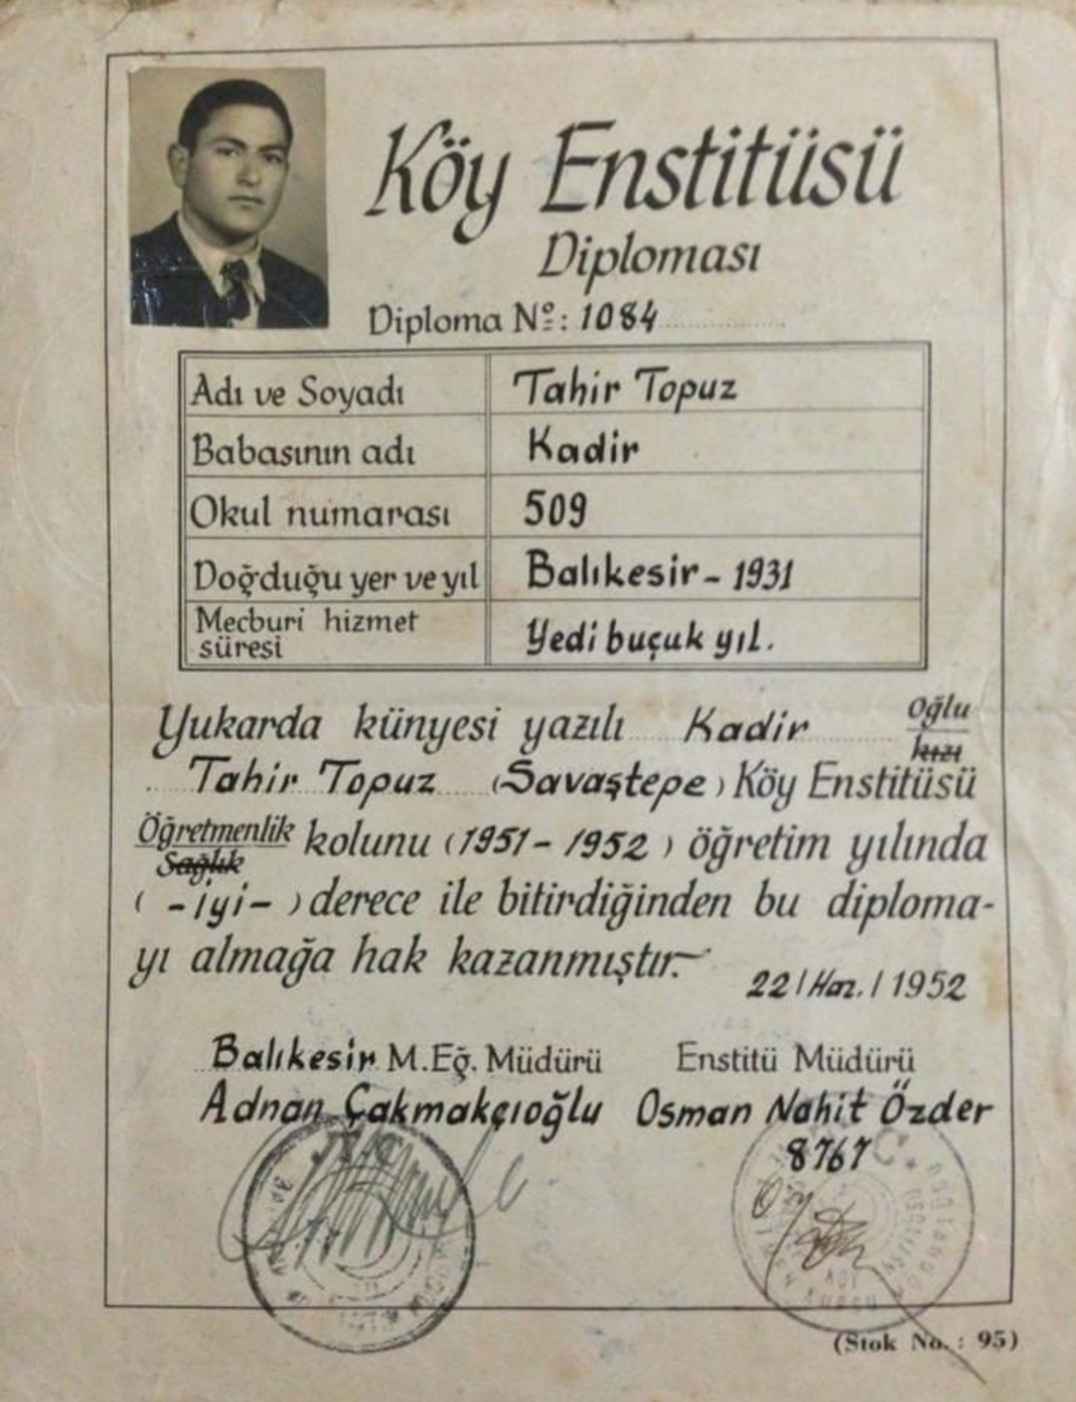 Köy Enstitüsü
Diploması
Diploma Nº: 1084
Adı ve Soyadı Tahir Topuz
Babasının adı Kadir
Okul numarası 509
Doğduğu yer ve yıl Balıkesir - 1931
Mecburi hizmet süresi Yedi buçuk yıl.
Yukarda künyesi yazılı Kadir Oğlu kızı
Tahir Topuz (Savaştepe) Köy Enstitüsü
Öğretmenlik Sağlık kolunu (1951 - 1952) öğretim yılında
( - iyi - ) derece ile bitirdiğinden bu diploma-
yı almağa hak kazanmıştır.
22 / Haz. / 1952
Balıkesir M.Eğ. Müdürü Enstitü Müdürü
Adnan Çakmakçıoğlu Osman Nahit Özder
8767
(Stok No. : 95)